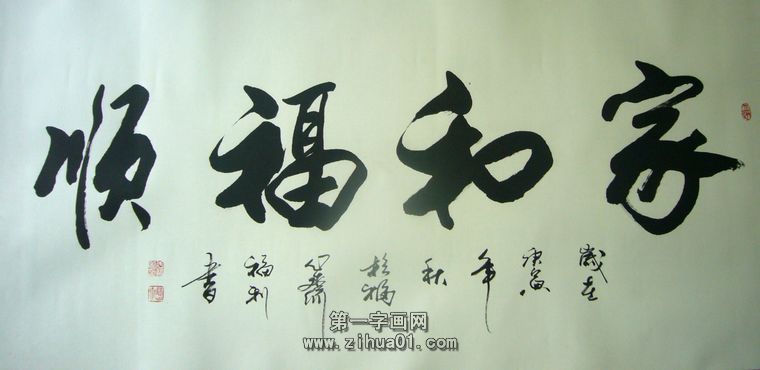 家和福顺
岁在庚寅年秋于 斋福利书
第一字画网
www.zihua01.com